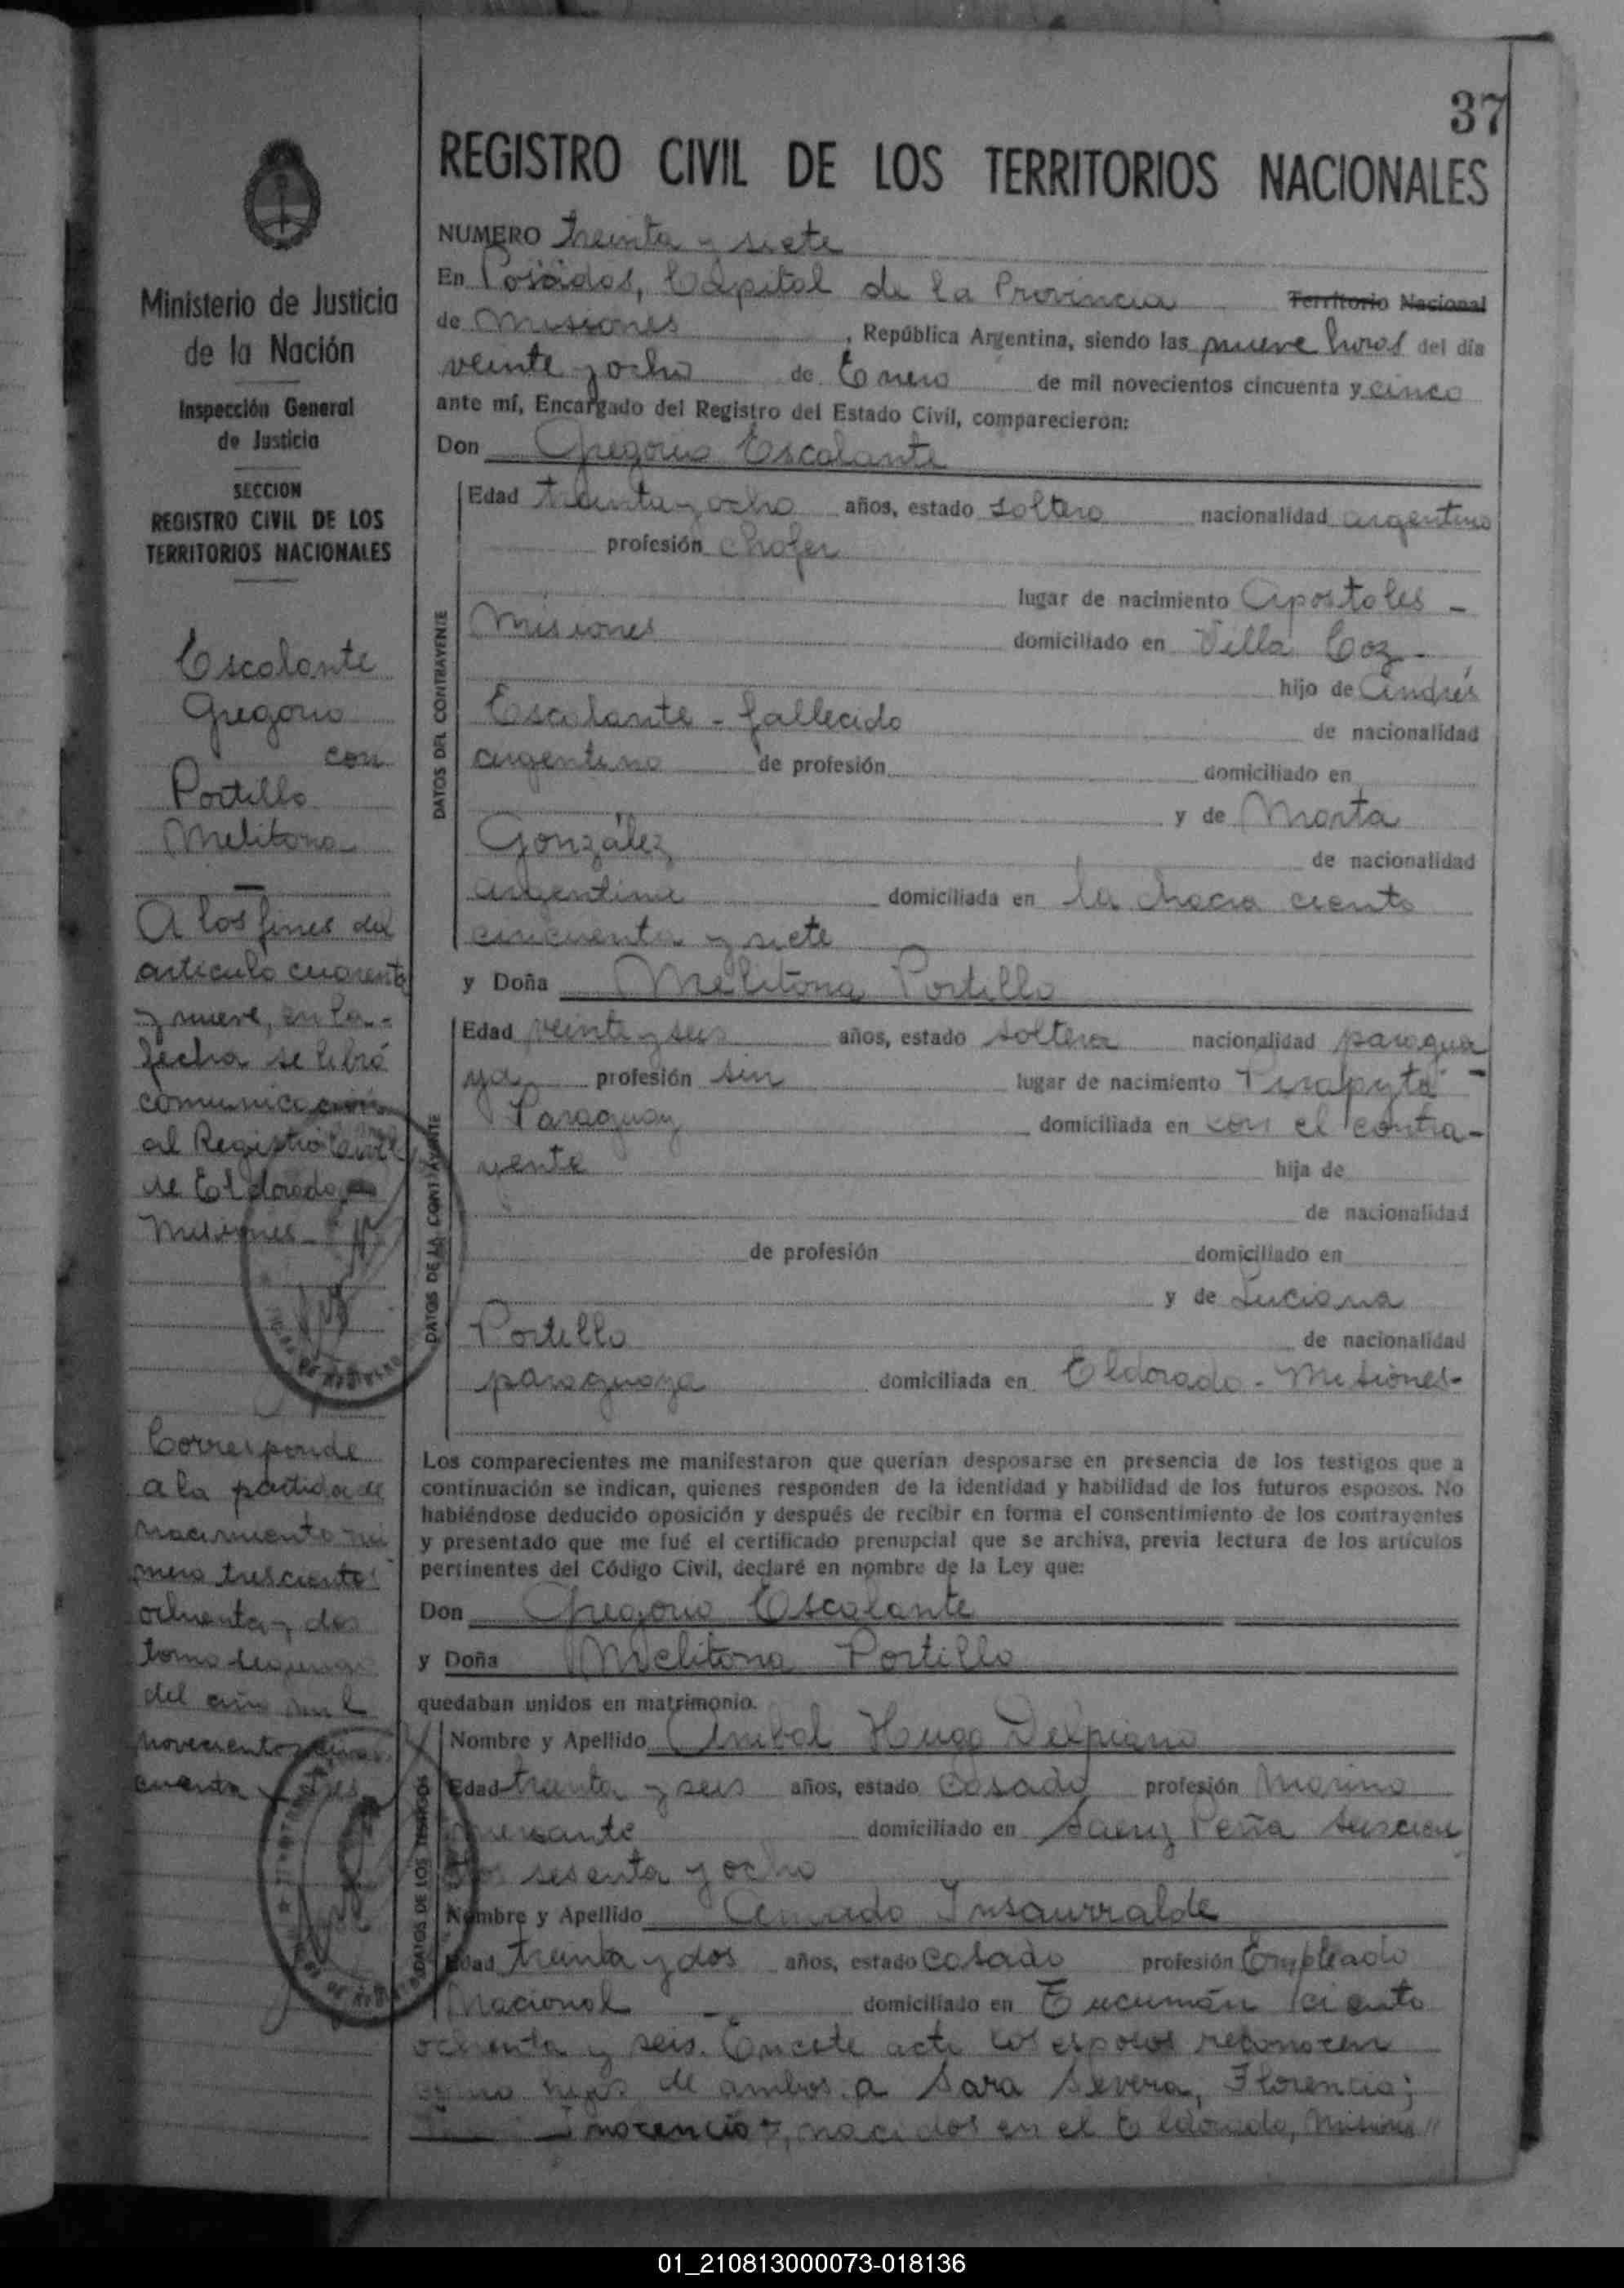 37
REGISTRO CIVIL DE LOS TERRITORIOS NACIONALES
Ministerio de Justicia
de la Nación
Inspección General
de Justicia
SECCION
REGISTRO CIVIL DE LOS
TERRITORIOS NACIONALES
Escalante
Gregorio
con
Portillo
Melitona
A los fines del
artículo cuarenta
y nueve, en la
fecha se libró
comunicación
al Registro Civil
de Eldorado
Misiones
Corresponde
a la partida de
nacimiento nú
mero trescientos
ochenta y dos
tomo segundo
del año mil
novecientos cin
cuenta y tres
NUMERO treinta y siete
En Posadas, Capital de la Provincia Territorio Nacional
de Misiones, República Argentina, siendo las nueve horas del día
veinte y ocho de Enero de mil novecientos cincuenta y cinco
ante mí, Encargado del Registro del Estado Civil, comparecieron:
Don Gregorio Escalante
DATOS DEL CONTRAYENTE
Edad treinta y ocho años, estado soltero nacionalidad argentino
profesión chofer
lugar de nacimiento Apostoles -
Misiones domiciliado en Villa Coz -
hijo de Andrés
Escalante - fallecido de nacionalidad
argentino de profesión domiciliado en
y de Marta
González de nacionalidad
argentina domiciliada en la chacra ciento
cincuenta y siete
y Doña Melitona Portillo
DATOS DE LA CONTRAYENTE
Edad veinte y seis años, estado soltera nacionalidad paragua
ya profesión sin lugar de nacimiento Pirapytá -
Paraguay domiciliada en con el contra-
yente hija de
de nacionalidad
de profesión domiciliado en
y de Luciana
Portillo de nacionalidad
paraguaya domiciliada en Eldorado - Misiones -
Los comparecientes me manifestaron que querían desposarse en presencia de los testigos que a
continuación se indican, quienes responden de la identidad y habilidad de los futuros esposos. No
habiéndose deducido oposición y después de recibir en forma el consentimiento de los contrayentes
y presentado que me fué el certificado prenupcial que se archiva, previa lectura de los artículos
pertinentes del Código Civil, declaré en nombre de la Ley que:
Don Gregorio Escalante
y Doña Melitona Portillo
quedaban unidos en matrimonio.
DATOS DE LOS TESTIGOS
Nombre y Apellido Anibal Hugo Delpiano
Edad treinta y seis años, estado casado profesión Marino
mercante domiciliado en Saenz Peña seiscien
tos sesenta y ocho
Nombre y Apellido Amado Insaurralde
Edad treinta y dos años, estado casado profesión Empleado
Nacional domiciliado en Tucumán ciento
ochenta y seis. En este acto los esposos reconocen
como hijos de ambos a Sara Severa, Florencio;
Inocencio, nacidos en el Eldorado, Misiones //
01_210813000073-018136